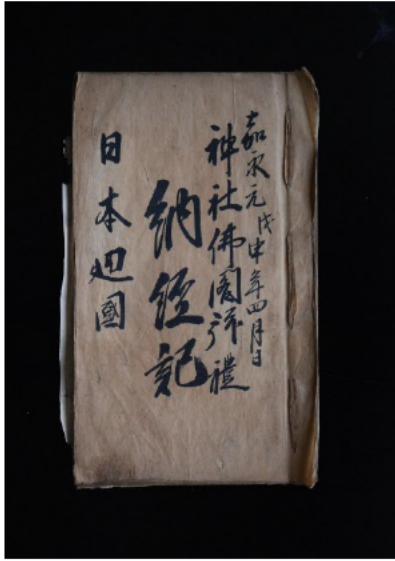 嘉永元戊申年四月日
神社佛閣拝禮
納経記
日本廻國